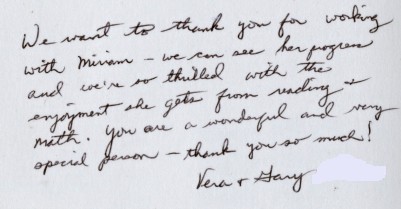 We want to thank you for working
with Miriam - we can see her progress
and we're so thrilled with the
enjoyment she gets from reading +
math. You are a wonderful and very
special person - thank you so much!
Vera + Gary